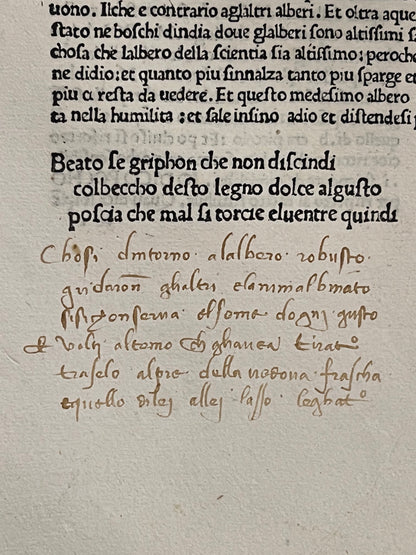 uono. Ilche e contrario aglaltri alberi. Et oltra aque
stato ne boschi dindia doue glalberi sono altissimi
chosa che lalbero della scientia sia altissimo; peroche
ne didio: et quanto piu sinnalza tanto piu sparge et
piu ci resta da uedere. Et questo medesimo albero
ta nella humilita: et sale insino adio et distendesi
Beato se griphon che non discindi
colbeccho desto legno dolce algusto
poscia che mal si torcie eluentre quindi
Chosi dintorno · alalbero · robusto ·
gridaron ghaltri elanimalbinato
sisi chonserua · elseme · dogni · gusto
Et volti altemo ch ghauea tirato
traselo alpie della uedoua frascha
equello dilei allei lasso · leghato